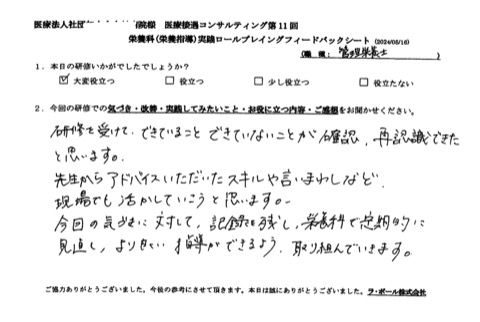 医療法人社団 院様 医療接遇コンサルティング第11回
栄養科(栄養指導)実践ロールプレイングフィードバックシート (2024/05/16)
(職種: 管理栄養士)
1．本日の研修いかがでしたでしょうか?
☑ 大変役立つ □ 役立つ □ 少し役立つ □ 役立たない
2．今回の研修での気づき・改善・実践してみたいこと・お役に立つ内容・ご感想をお聞かせください。
研修を受けて、できていること できていないことが確認、再認識できた
と思います。
先生からアドバイスいただいたスキルや言いまわしなど、
現場でも活かしていこうと思います。
今回の気づきに対して、記録を残し、栄養科で定期的に
見直し、より良い指導ができるよう、取り組んでいきます。
ご協力ありがとうございました。今後の参考にさせて頂きます。本日は誠にありがとうございました。ラ・ポール株式会社